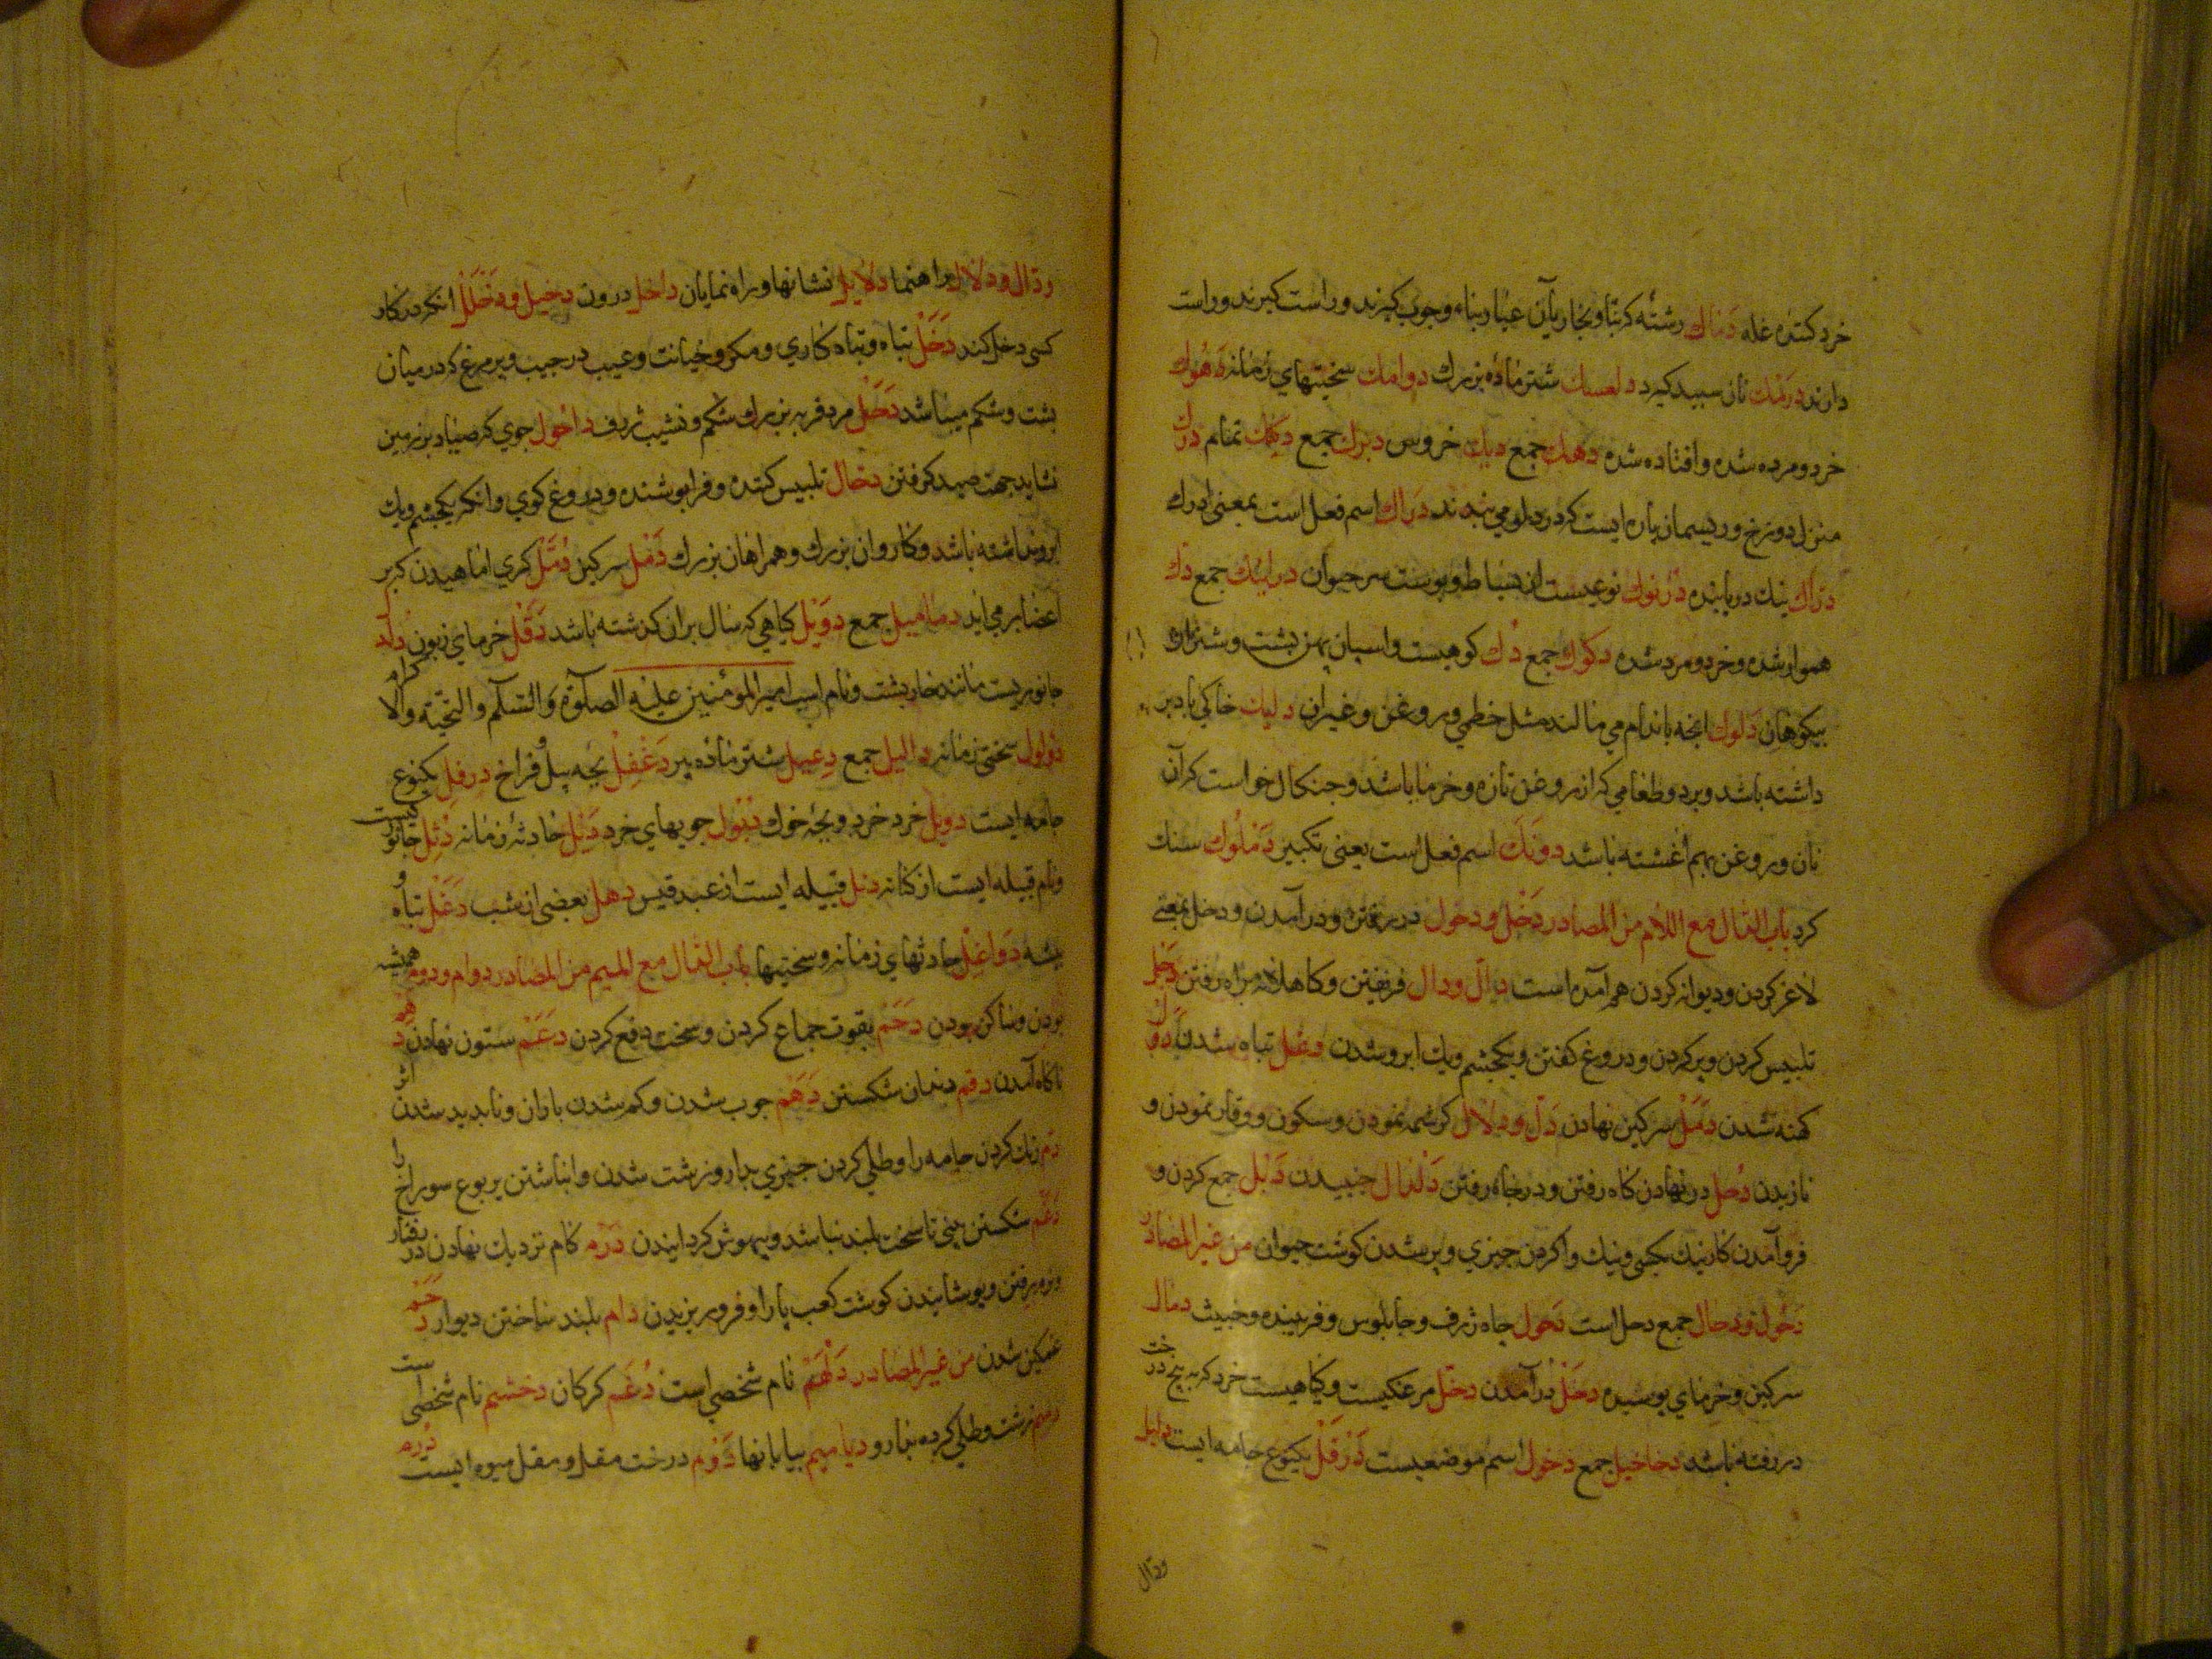 خرد کننده غله دماك رشته که بنا و نجار بآن عیار بناء وجوب کیرند و راست کیرند و راست
دارند درمك نان سبید کیرد دلعسك شتر ماده بزرك دوامك سختیهای زمانه دهوك
خرد ومرده شده وافتاده شده دهك جمع دیك خروس دبرك جمع دکك تمام درك
منزل دوزخ وریسمان پاره ایست که در دلو می بندند دراك اسم فعل است بمعنی ادرك
دراك نیك دریابنده درنوك نوعیست از بساط وپوست سر حیوان درانیك جمع دك
هموار شده وخرد ومرد شده دکوك جمع دك کوهیست واسبان پهن پشت وشتر ماده
بیکوهان دلوك انجه باندام می مالند مثل خطمی وروغن وغیر ان دلیك خاکی باد بر
داشته باشد وبرد وطعامی که از روغن تازه وخرما باشد وجنکال خواست که آن
نان وروغن بهم اغشته باشد دونك اسم فعل است یعنی تکبیر دملوك سنك
کرد باب الدال مع اللام من المصادر دخل و دخول در رفتن ودر آمدن ودخل بمعنی
لاغر کردن ودیوانه کردن هم آمده است دال ودال فریفتن وکاهلانه براه رفتن دجل
تلبیس کردن وپر کردن ودروغ کفتن ویکجشم ویك ابرو شدن دغل تباه شدن
کهنه شدن دمل سرکین نهادن دل ودلال کرشمه نمودن وسکون ووقار نمودن و
نازیدن دحل در نهادن کاه رفتن ودر جاه رفتن دلدال جنبیدن دبل جمع کردن و
فرو آمدن کار نیك بکسی ونیك واکردن جیزی وپر شدن کوشت حیوان من غیر المصادر
دحول ودحال جمع دحل است دحول جاه ژرف وجابلوس وفریبنده وخبیث دمال
سرکین وخرمای پوسیده دخل در آمدن دخل مرغکیست وکیاهیست خرد که به بیخ درخت
در رفته باشد دخاخیل جمع دخول اسم موضعیست درقل یکنوع جامه ایست دلیل
ودال
ودال ودلال راهنما دلایل نشانها وراه نمایان داخل درون دخیل ودخلل انکه در کار
کسی دخل کند دخل تباه وتباه کاری ومکر وخیانت وعیب در جیب وپر مرغ که در میان
پشت وشکم میباشد دحل مرد فربه بزرك شکم ونشیب ژرف داحول جوی که صیاد بر زمین
نشاید جهت صید کرفتن دجال تلبیس کننده وفرا پوشنده ودروغ کوی وانکه یکجشم ویك
ابرو نداشته باشد وکاروان بزرك وهمراهان بزرك دمل سرکین دمل کری اماهیدن کبر
اعضا بر می اید دمامیل جمع دویل کیاهی که سال بران کذشته باشد دقل خرمای زبون دلدل
جانوریست مانند خاربشت ونام اسب امیر المومنین علیه الصلوة والسلام والتحیته والاکرام
دولول سختی زمانه دالیل جمع دعبل شتر ماده پیر دغفل بجه پیل وفراخ درفل یکنوع
جامه ایست دوبل خرد خرد وبجه خوك دبول جویهای خرد دبل حادثه زمانه دئل جانوریست
ونام قبیله ایست از کنانه دیل قبیله ایست از عبد قیس دهل بعضی از شب دغل تباه و
بیشه دواغل حادثهای زمانه وسختیها باب الدال مع المیم من المصادر دوام ودوم همیشه
بودن وساکن بودن دحم بقوت جماع کردن وسخت دفع کردن دعم ستون نهادن دهم
ناکاه آمدن دقم دندان شکستن دهم جوب شدن وکم شدن باران ونابدید شدن اثر
دم رنك کردن جامه را وطلی کردن جیزی بدارو زشت شدن وانباشتن یربوع سوراخ را
دغم شکستن بینی تا سخت بلند نباشد وبیهوش کردانیدن درم کام نزدیك نهادن در رفتار
وفرو رفتن وپوشانیدن کوشت کعب پا را وفرو ریزیدن دام بلند ساختن دیوار دحم
غمکین شدن من غیر المصادر دلهم نام شخصی است دغم کرکان دخشم نام شخصی است
دمیم زشت وطلی کرده بدارو دیامیم بیابانها دوم درخت مقل ومقل میوه ایست درم